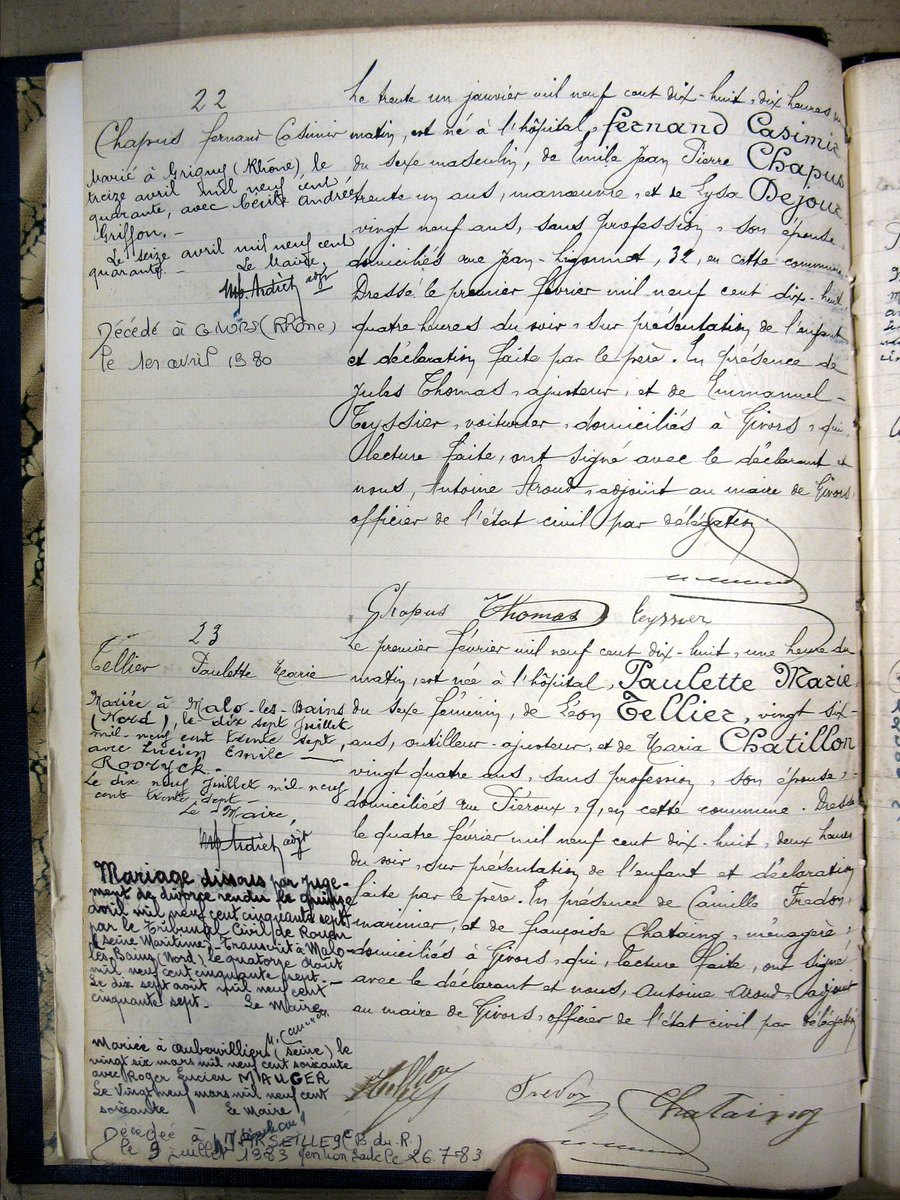 22
Chapus Fernand Casimir
Marié à Grigny (Rhône), le
treize avril mil neuf cent
quarante, avec Cécile Andrée
Griffon. -
Le seize avril mil neuf cent
quarante. - Le Maire,
adjt
Décédé à GIVORS (Rhône)
le 1er avril 1980
Le trente un janvier mil neuf cent dix-huit, dix heures du
matin, est né à l'hôpital, Fernand Casimir
du sexe masculin, de Emile Jean Pierre Chapus
trente un ans, manœuvre, et de Lysa Dejour
vingt neuf ans, sans profession, son épouse,
domiciliés rue Jean-Ligonnet, 32, en cette commune.
Dressé le premier février mil neuf cent dix-huit
quatre heures du soir, sur présentation de l'enfant
et déclaration faite par le père. En présence de
Jules Thomas, ajusteur, et de Emmanuel-
Teyssier, voiturier, domiciliés à Givors, qui,
lecture faite, ont signé avec le déclarant et
nous, Antoine Aroud, adjoint au maire de Givors,
officier de l'état civil par délégation.
Chapus Thomas Teyssier
23
Tellier Paulette Marie
Mariée à Malo-les-Bains
(Nord), le dix sept Juillet
mil-neuf cent trente sept,
avec Lucien Emile
Rooryck.
Le dix neuf Juillet mil-neuf
cent trente sept -
Le Maire,
adjt
Mariage dissous par juge-
ment de divorce rendu le quinze
avril mil neuf cent cinquante sept
par le Tribunal Civil de Rouen
(Seine Maritime). Transcrit à Malo-
les-Bains (Nord) le quatorze août
mil neuf cent cinquante sept. -
Le dix sept août mil neuf cent
cinquante sept. - Le Maire
Mariée à Aubervilliers (Seine) le
vingt six mars mil neuf cent soixante
avec Roger Lucien MAUGER
Le Vingt neuf mars mil neuf cent
soixante Le Maire
Décédée à MARSEILLE (B. du R.)
le 9 juillet 1983 le 26.7.83
Le premier février mil neuf cent dix-huit, une heure du
matin, est née à l'hôpital, Paulette Marie,
du sexe féminin, de Léon Tellier, vingt six-
ans, outilleur-ajusteur, et de Maria Chatillon
vingt quatre ans, sans profession, son épouse,
domiciliés rue Piéroux, 9, en cette commune. Dressé
le quatre février mil neuf cent dix-huit, deux heures
du soir, sur présentation de l'enfant et déclaration
faite par le père. En présence de Camille Fredon,
marinier, et de Françoise Chataing, ménagère,
domiciliés à Givors, qui, lecture faite, ont signé
avec le déclarant et nous, Antoine Aroud, adjoint
au maire de Givors, officier de l'état civil par délégation
Tellier Fredon Chataing